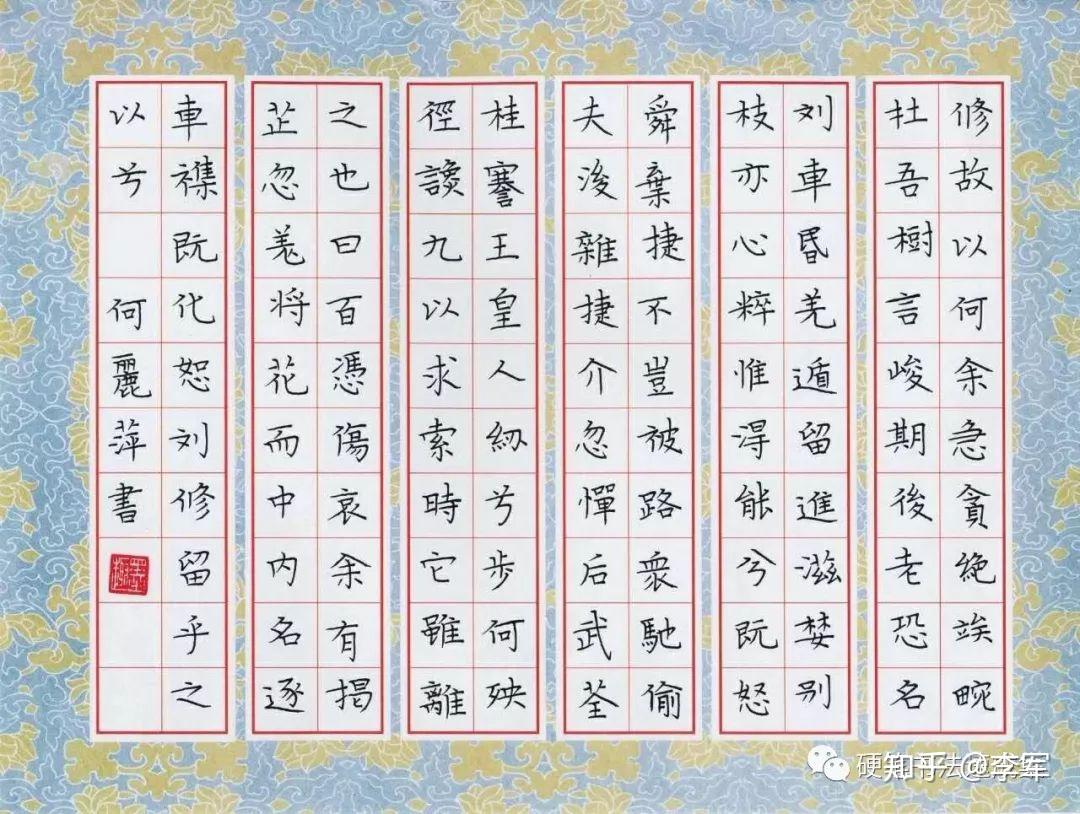 修故以何余急貪絶竢畹
杜吾樹言峻期後老恐名
刘車昬羌遁留進滋婪别
枝亦心粹惟淂能兮既怒
舜棄捷不豈被路衆馳偷
夫浚雜捷介忽憚后武荃
桂謇王皇人紉兮步何殃
徑讒九以求索時它雖離
之也曰百憑傷哀余有揭
芷忽羗将花而中内名逐
車襟既化恕刘修留乎之
以兮
何麗萍書
知乎 @李军